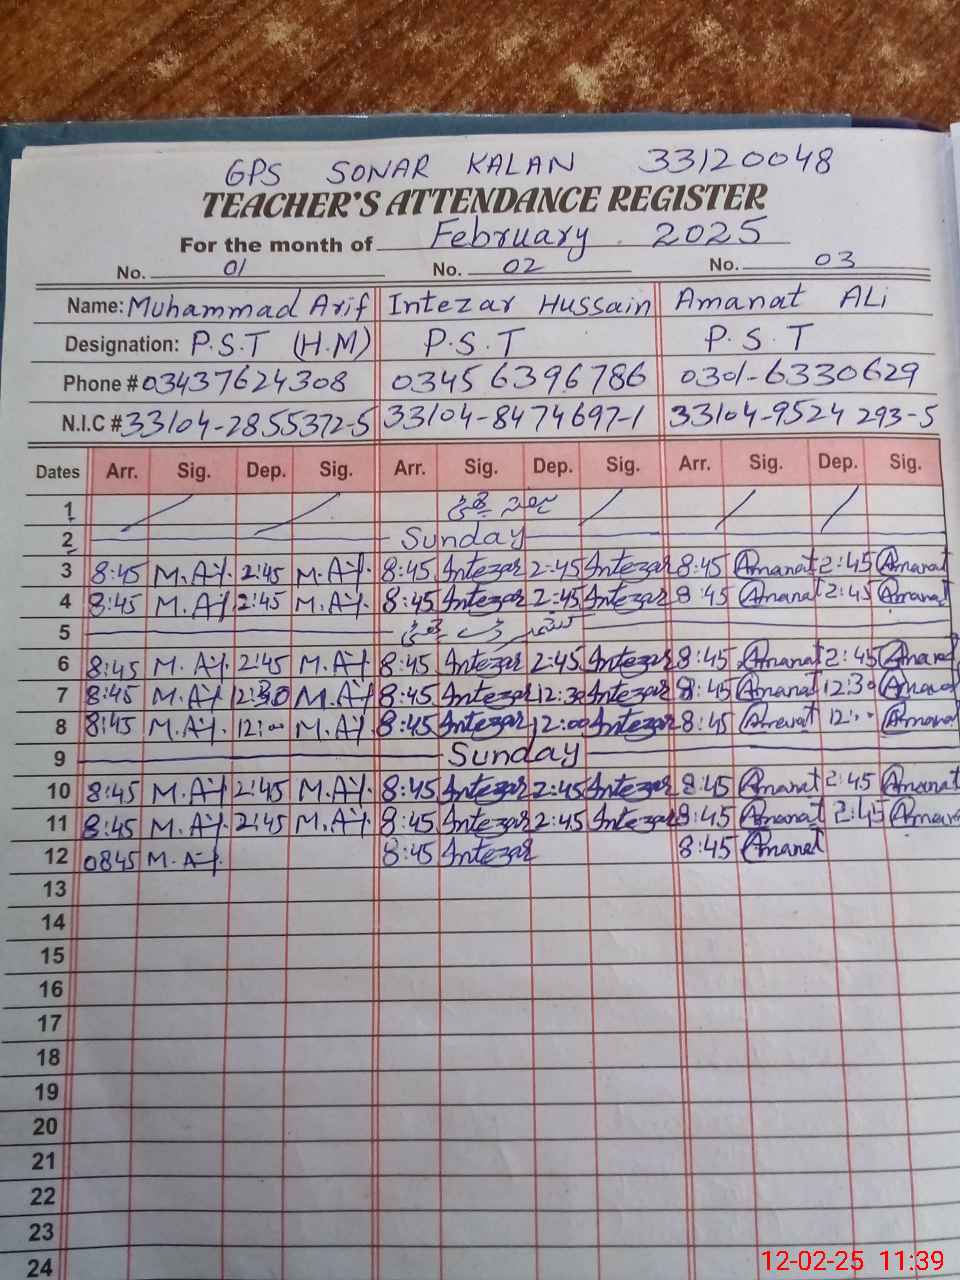 GPS SONAR KALAN 33120048
TEACHER'S ATTENDANCE REGISTER
For the month of February 2025
No. 01 No. 02 No. 03
Name: Muhammad Arif Intezar Hussain Amanat ALi
Designation: P.S.T (H.M) P.S.T P.S.T
Phone # 03437624308 0345 6396786 0301-6330629
N.I.C # 33104-2855372-5 33104-8474697-1 33104-9524293-5
Dates Arr. Sig. Dep. Sig. Arr. Sig. Dep. Sig. Arr. Sig. Dep. Sig.
1
2 Sunday
3 8:45 M.Arif 2:45 M.Arif 8:45 Intezar 2:45 Intezar 8:45 Amanat 2:45 Amanat
4 8:45 M.Arif 2:45 M.Arif 8:45 Intezar 2:45 Intezar 8:45 Amanat 2:45 Amanat
5
6 8:45 M.Arif 2:45 M.Arif 8:45 Intezar 2:45 Intezar 8:45 Amanat 2:45 Amanat
7 8:45 M.Arif 12:30 M.Arif 8:45 Intezar 12:30 Intezar 8:45 Amanat 12:30 Amanat
8 8:45 M.Arif 12:00 M.Arif 8:45 Intezar 12:00 Intezar 8:45 Amanat 12:00 Amanat
9 Sunday
10 8:45 M.Arif 2:45 M.Arif 8:45 Intezar 2:45 Intezar 8:45 Amanat 2:45 Amanat
11 8:45 M.Arif 2:45 M.Arif 8:45 Intezar 2:45 Intezar 8:45 Amanat 2:45 Amanat
12 0845 M.Arif 8:45 Intezar 8:45 Amanat
13
14
15
16
17
18
19
20
21
22
23
24
12-02-25 11:39